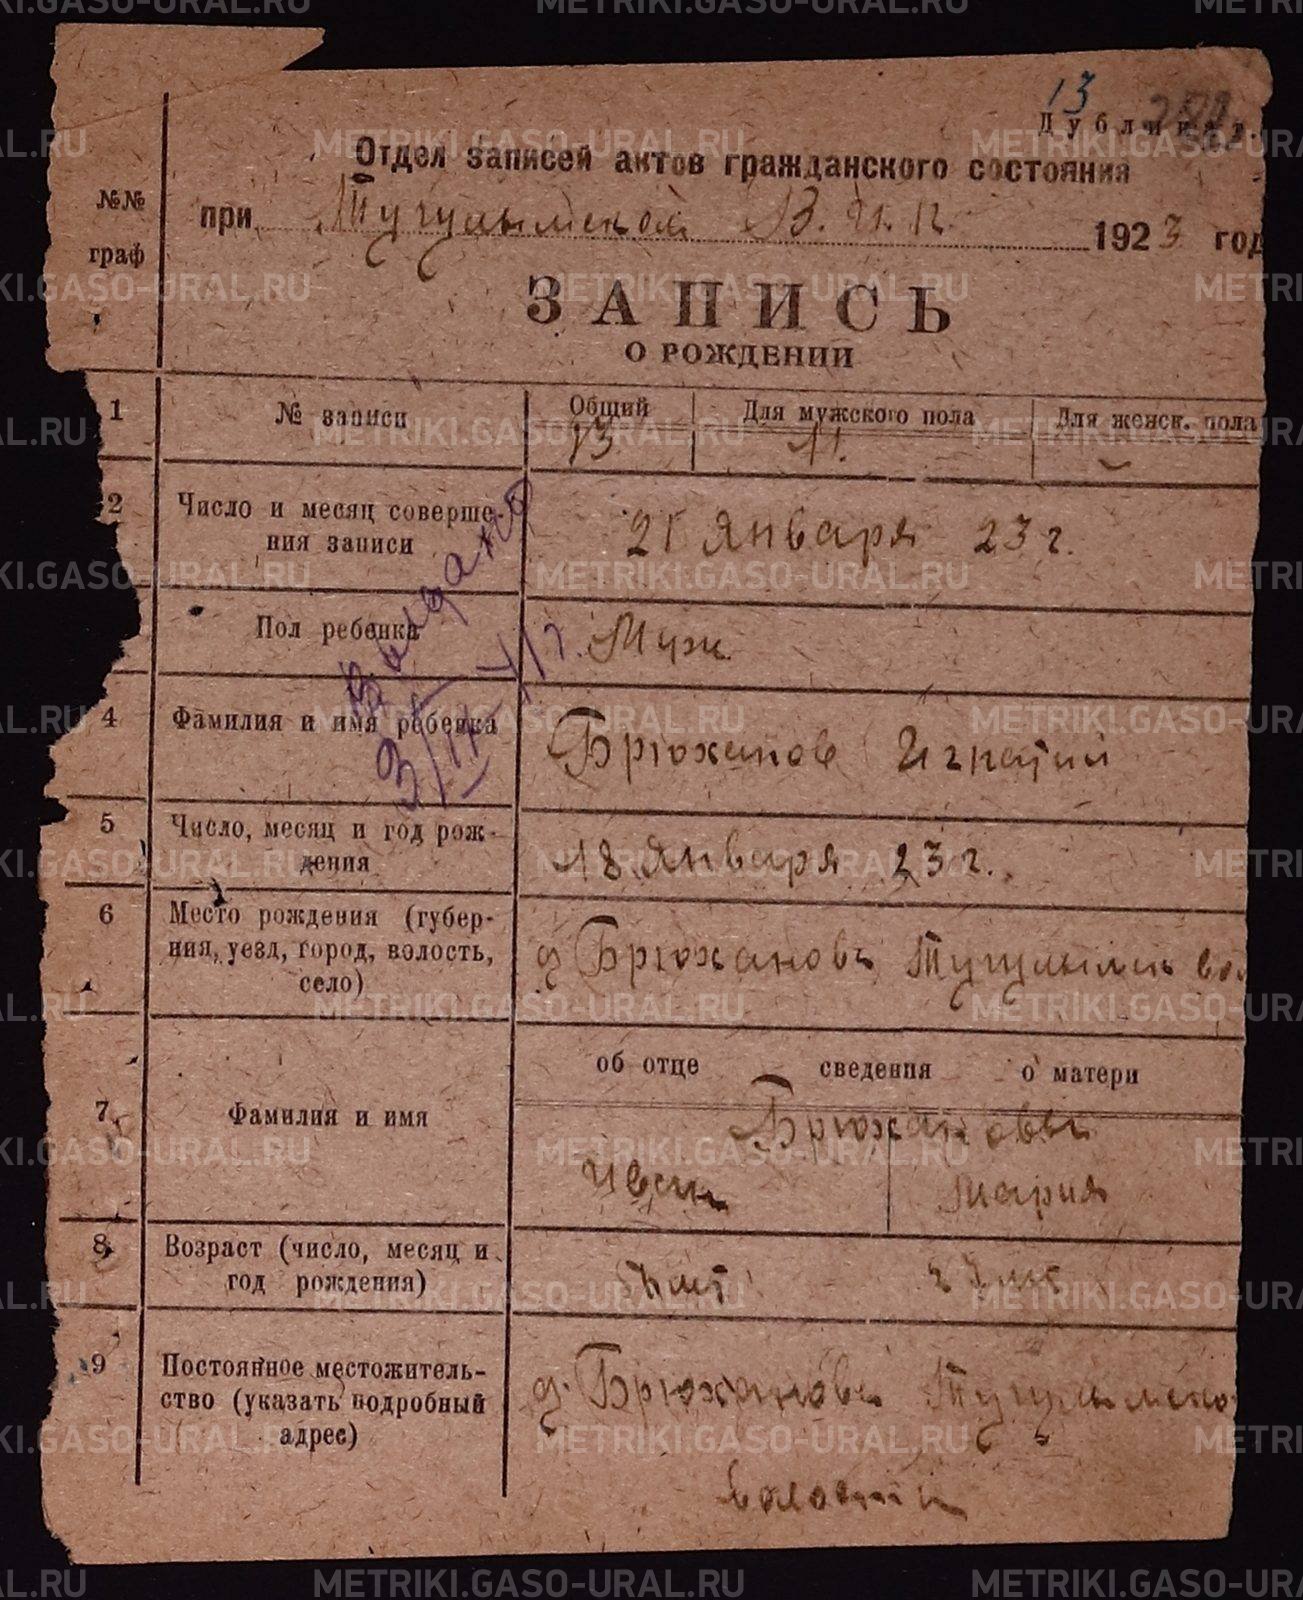 13
Дубликат.
Отдел записей актов гражданского состояния
№№ граф
при Тугулымской В. И. К. 1923 год
ЗАПИСЬ
О РОЖДЕНИИ
1 № записи Общий Для мужского пола Для женск. пола
13 11. -
2 Число и месяц соверше-
ния записи
21 Января 23 г.
Пол ребенка Муж
Выдано
4 Фамилия и имя ребенка Брюханов Игнатий
5 Число, месяц и год рож-
дения
18 Января 23 г.
6 Место рождения (губер-
ния, уезд, город, волость,
село)
д Брюхановь Тугулымск вол
об отце сведения о матери
7 Фамилия и имя
Брюхановы
Иван Мария
8 Возраст (число, месяц и
год рождения)
9 Постоянное местожитель-
ство (указать подробный
адрес)
д. Брюханова Тугулымско
волости
METRIKI.GASO-URAL.RU